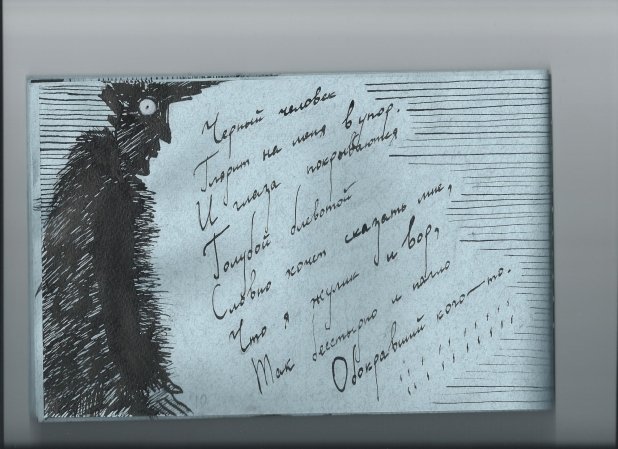 Черный человек
Глядит на меня в упор.
И глаза покрываются
Голубой блевотой
Словно хочет сказать мне,
Что я жулик и вор,
Так бесстыдно и нагло
Обокравший кого-то.
10